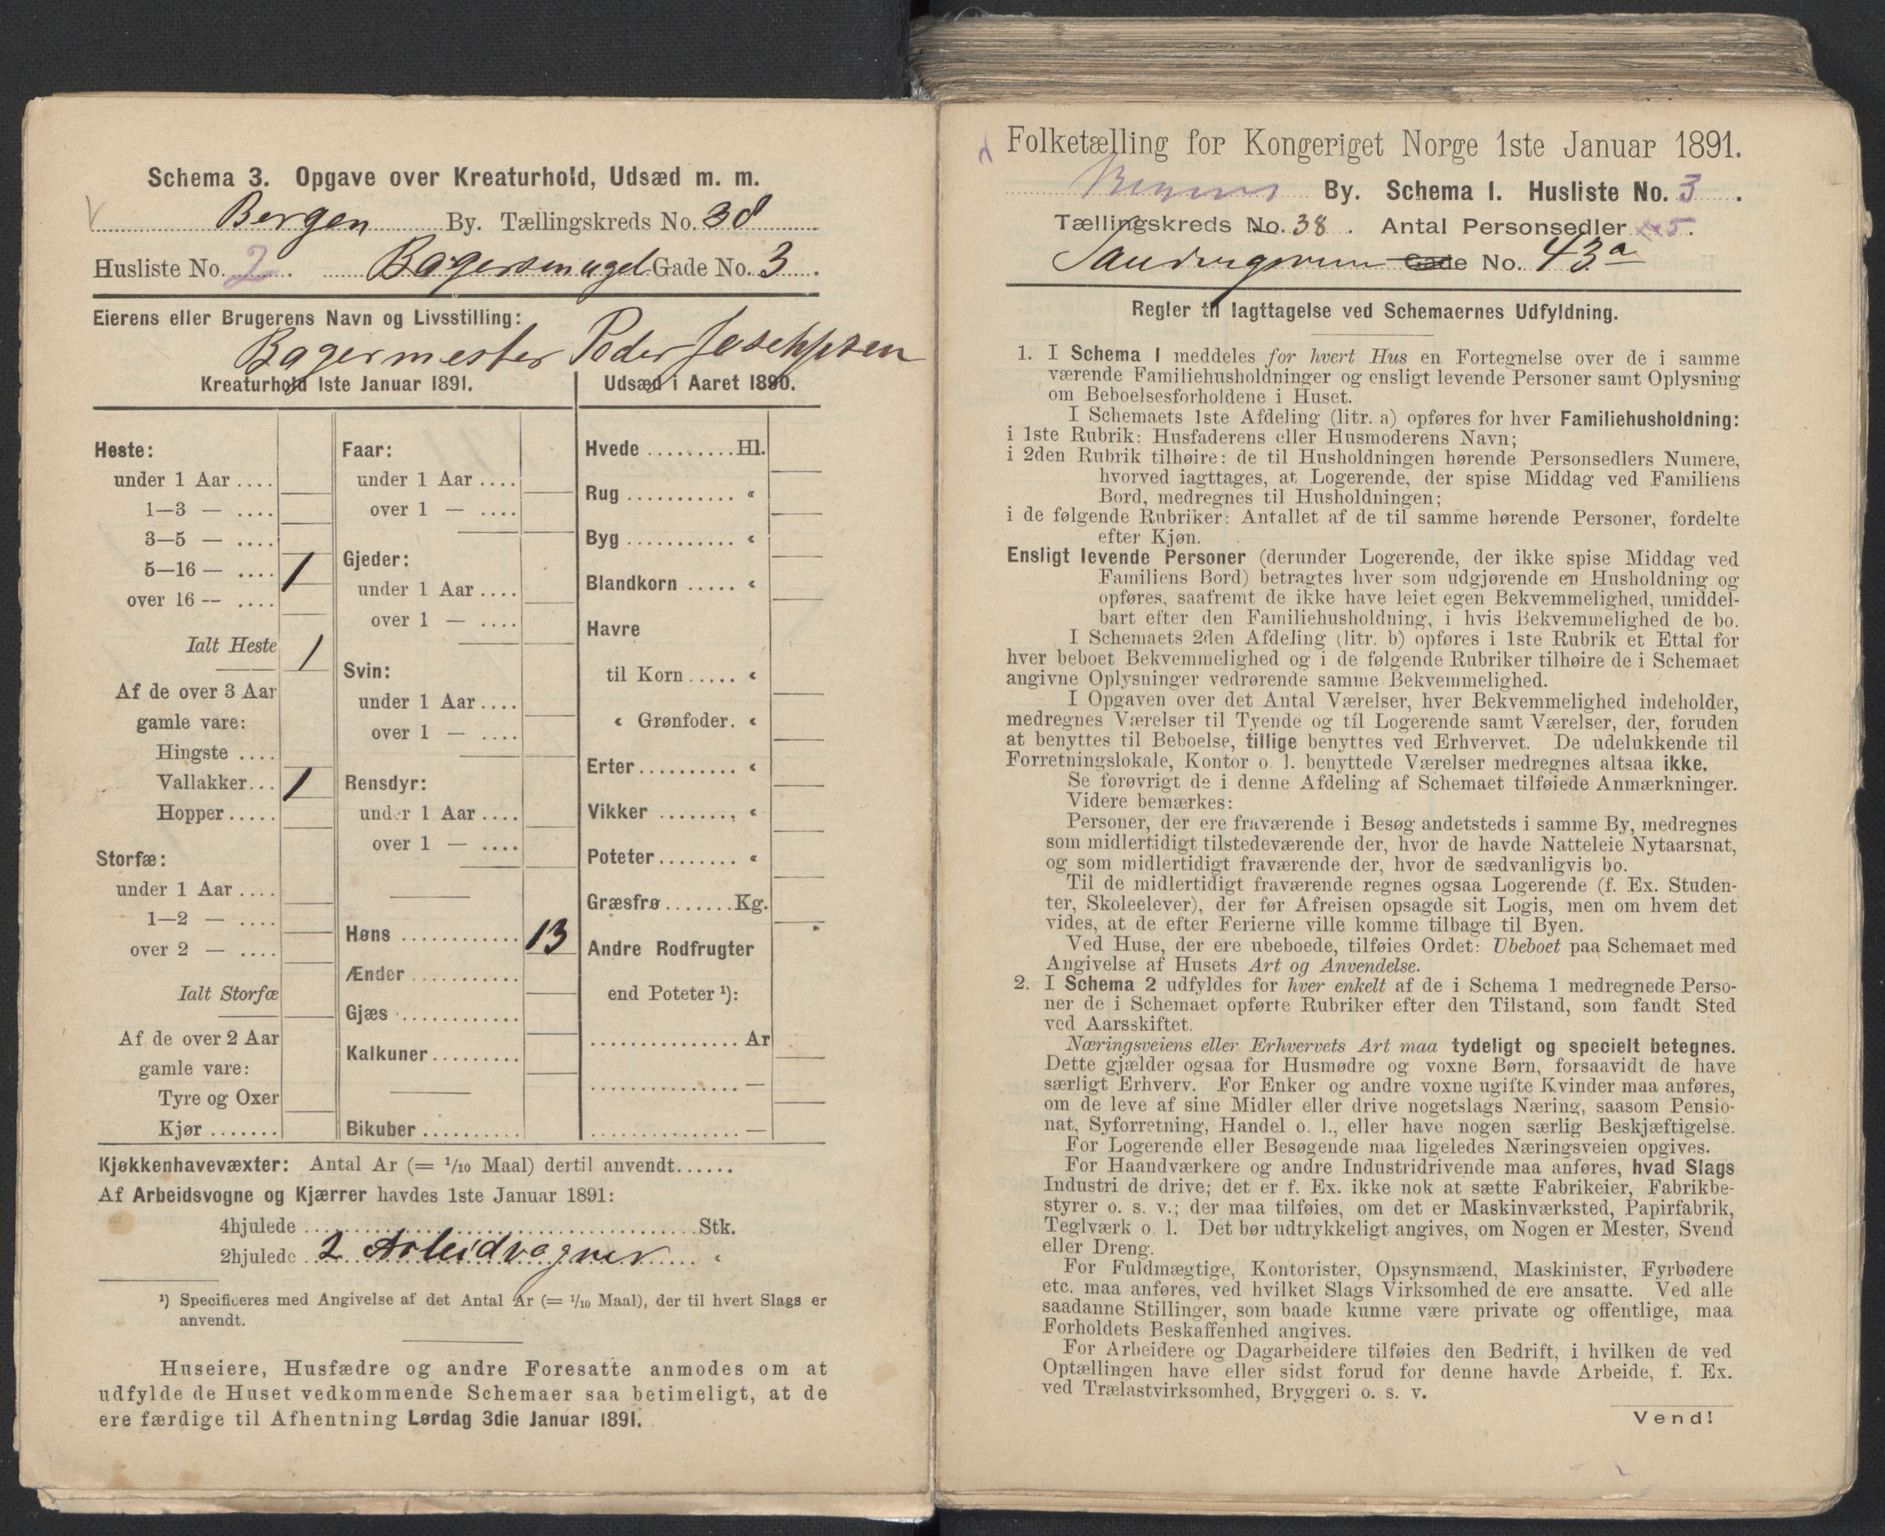 Schema 3. Opgave over Kreaturhold, Udsæd m. m.
Bergen By. Tællingskreds No. 38
Husliste No. 2. Bagersmuget Gade No. 3.
Eierens eller Brugerens Navn og Livsstilling:
Bagermester Peder Josephsen
Kreaturhold 1ste Januar 1891.
Heste:
under 1 Aar....
1—3 — ....
3—5 — ....
5—16 — .... 1
over 16 — ....
Ialt Heste 1
Af de over 3 Aar
gamle vare:
Hingste ....
Vallakker... 1
Hopper.....
Storfæ:
under 1 Aar....
1—2 — ....
over 2 — ....
Ialt Storfæ
Af de over 2 Aar
gamle vare:
Tyre og Oxer
Kjør.......
Faar:
under 1 Aar....
over 1 — ....
Gjeder:
under 1 Aar....
over 1 — ....
Svin:
under 1 Aar....
over 1 — ....
Rensdyr:
under 1 Aar....
over 1 — ....
Høns............ 13
Ænder...........
Gjæs............
Kalkuner.........
Bikuber..........
Udsæd i Aaret 1890.
Hvede.........Hl.
Rug........... «
Byg............ «
Blandkorn..... «
Havre
til Korn..... «
« Grønfoder. «
Erter.......... «
Vikker........, «
Poteter........ «
Græsfrø.......Kg.
Andre Rodfrugter
end Poteter ¹):
............... Ar
............... —
............... —
Kjøkkenhavevæxter: Antal Ar (= 1/10 Maal) dertil anvendt......
Af Arbeidsvogne og Kjærrer havdes 1ste Januar 1891:
4hjulede ........................Stk.
2hjulede 2 Arbeidvogner «
¹) Specificeres med Angivelse af det Antal Ar (= 1/10 Maal), der til hvert Slags er
anvendt.
Huseiere, Husfædre og andre Foresatte anmodes om at
udfylde de Huset vedkommende Schemaer saa betimeligt, at de
ere færdige til Afhentning Lørdag 3die Januar 1891.
Folketælling for Kongeriget Norge 1ste Januar 1891.
Bergens By. Schema I. Husliste No. 3.
Tællingskreds No. 38. Antal Personsedler 5.
Gade No. 43a
Regler til Iagttagelse ved Schemaernes Udfyldning.
1. I Schema I meddeles for hvert Hus en Fortegnelse over de i samme
værende Familiehusholdninger og ensligt levende Personer samt Oplysning
om Beboelsesforholdene i Huset.
I Schemaets 1ste Afdeling (litr. a) opføres for hver Familiehusholdning:
i 1ste Rubrik: Husfaderens eller Husmoderens Navn;
i 2den Rubrik tilhøire: de til Husholdningen hørende Personsedlers Numere,
hvorved iagttages, at Logerende, der spise Middag ved Familiens
Bord, medregnes til Husholdningen;
i de følgende Rubriker: Antallet af de til samme hørende Personer, fordelte
efter Kjøn.
Ensligt levende Personer (derunder Logerende, der ikke spise Middag ved
Familiens Bord) betragtes hver som udgjørende en Husholdning og
opføres, saafremt de ikke have leiet egen Bekvemmelighed, umiddel-
bart efter den Familiehusholdning, i hvis Bekvemmelighed de bo.
I Schemaets 2den Afdeling (litr. b) opføres i 1ste Rubrik et Ettal for
hver beboet Bekvemmelighed og i de følgende Rubriker tilhøire de i Schemaet
angivne Oplysninger vedrørende samme Bekvemmelighed.
I Opgaven over det Antal Værelser, hver Bekvemmelighed indeholder,
medregnes Værelser til Tyende og til Logerende samt Værelser, der, foruden
at benyttes til Beboelse, tillige benyttes ved Erhvervet. De udelukkende til
Forretningslokale, Kontor o. l. benyttede Værelser medregnes altsaa ikke.
Se forøvrigt de i denne Afdeling af Schemaet tilføiede Anmærkninger.
Videre bemærkes:
Personer, der ere fraværende i Besøg andetsteds i samme By, medregnes
som midlertidigt tilstedeværende der, hvor de havde Natteleie Nytaarsnat,
og som midlertidigt fraværende der, hvor de sædvanligvis bo.
Til de midlertidigt fraværende regnes ogsaa Logerende (f. Ex. Studen-
ter, Skoleelever), der før Afreisen opsagde sit Logis, men om hvem det
vides, at de efter Ferierne ville komme tilbage til Byen.
Ved Huse, der ere ubeboede, tilføies Ordet: Ubeboet paa Schemaet med
Angivelse af Husets Art og Anvendelse.
2. I Schema 2 udfyldes for hver enkelt af de i Schema 1 medregnede Perso-
ner de i Schemaet opførte Rubriker efter den Tilstand, som fandt Sted
ved Aarsskiftet.
Næringsveiens eller Erhvervets Art maa tydeligt og specielt betegnes.
Dette gjælder ogsaa for Husmødre og voxne Børn, forsaavidt de have
særligt Erhverv. For Enker og andre voxne ugifte Kvinder maa anføres,
om de leve af sine Midler eller drive nogetslags Næring, saasom Pensio-
nat, Syforretning, Handel o. l., eller have nogen særlig Beskjæftigelse.
For Logerende eller Besøgende maa ligeledes Næringsveien opgives.
For Haandværkere og andre Industridrivende maa anføres, hvad Slags
Industri de drive; det er f. Ex. ikke nok at sætte Fabrikeier, Fabrikbe-
styrer o. s. v.; der maa tilføies, om det er Maskinværksted, Papirfabrik,
Teglværk o. l. Det bør udtrykkeligt angives, om Nogen er Mester, Svend
eller Dreng.
For Fuldmægtige, Kontorister, Opsynsmænd, Maskinister, Fyrbødere
etc. maa anføres, ved hvilket Slags Virksomhed de ere ansatte. Ved alle
saadanne Stillinger, som baade kunne være private og offentlige, maa
Forholdets Beskaffenhed angives.
For Arbeidere og Dagarbeidere tilføies den Bedrift, i hvilken de ved
Optællingen have eller sidst forud for denne havde Arbeide, f. Ex.
ved Trælastvirksomhed, Bryggeri o. s. v.
Vend!